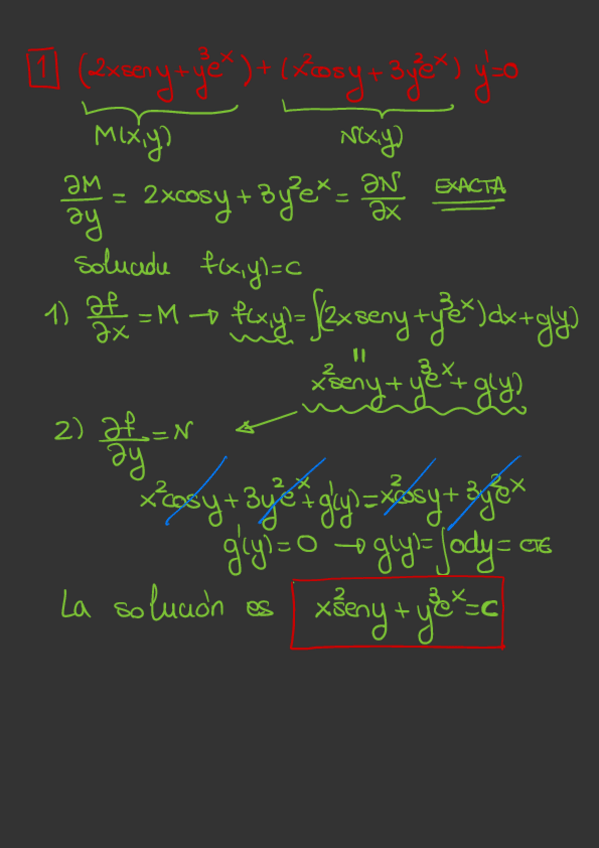 1 (2xseny + y³eˣ) + (x²cosy + 3y²eˣ) y' = 0
M(x,y) N(x,y)
∂M/∂y = 2xcosy + 3y²eˣ = ∂N/∂x EXACTA
f(x,y) = C
1) ∂f/∂x = M → f(x,y) = ∫(2xseny + y³eˣ)dx + g(y)
=
x²seny + y³eˣ + g(y)
2) ∂f/∂y = N
x²cosy + 3y²eˣ + g'(y) = x²cosy + 3y²eˣ
g'(y) = 0 → g(y) = ∫0dy = CTE
La solución es x²seny + y³eˣ = C